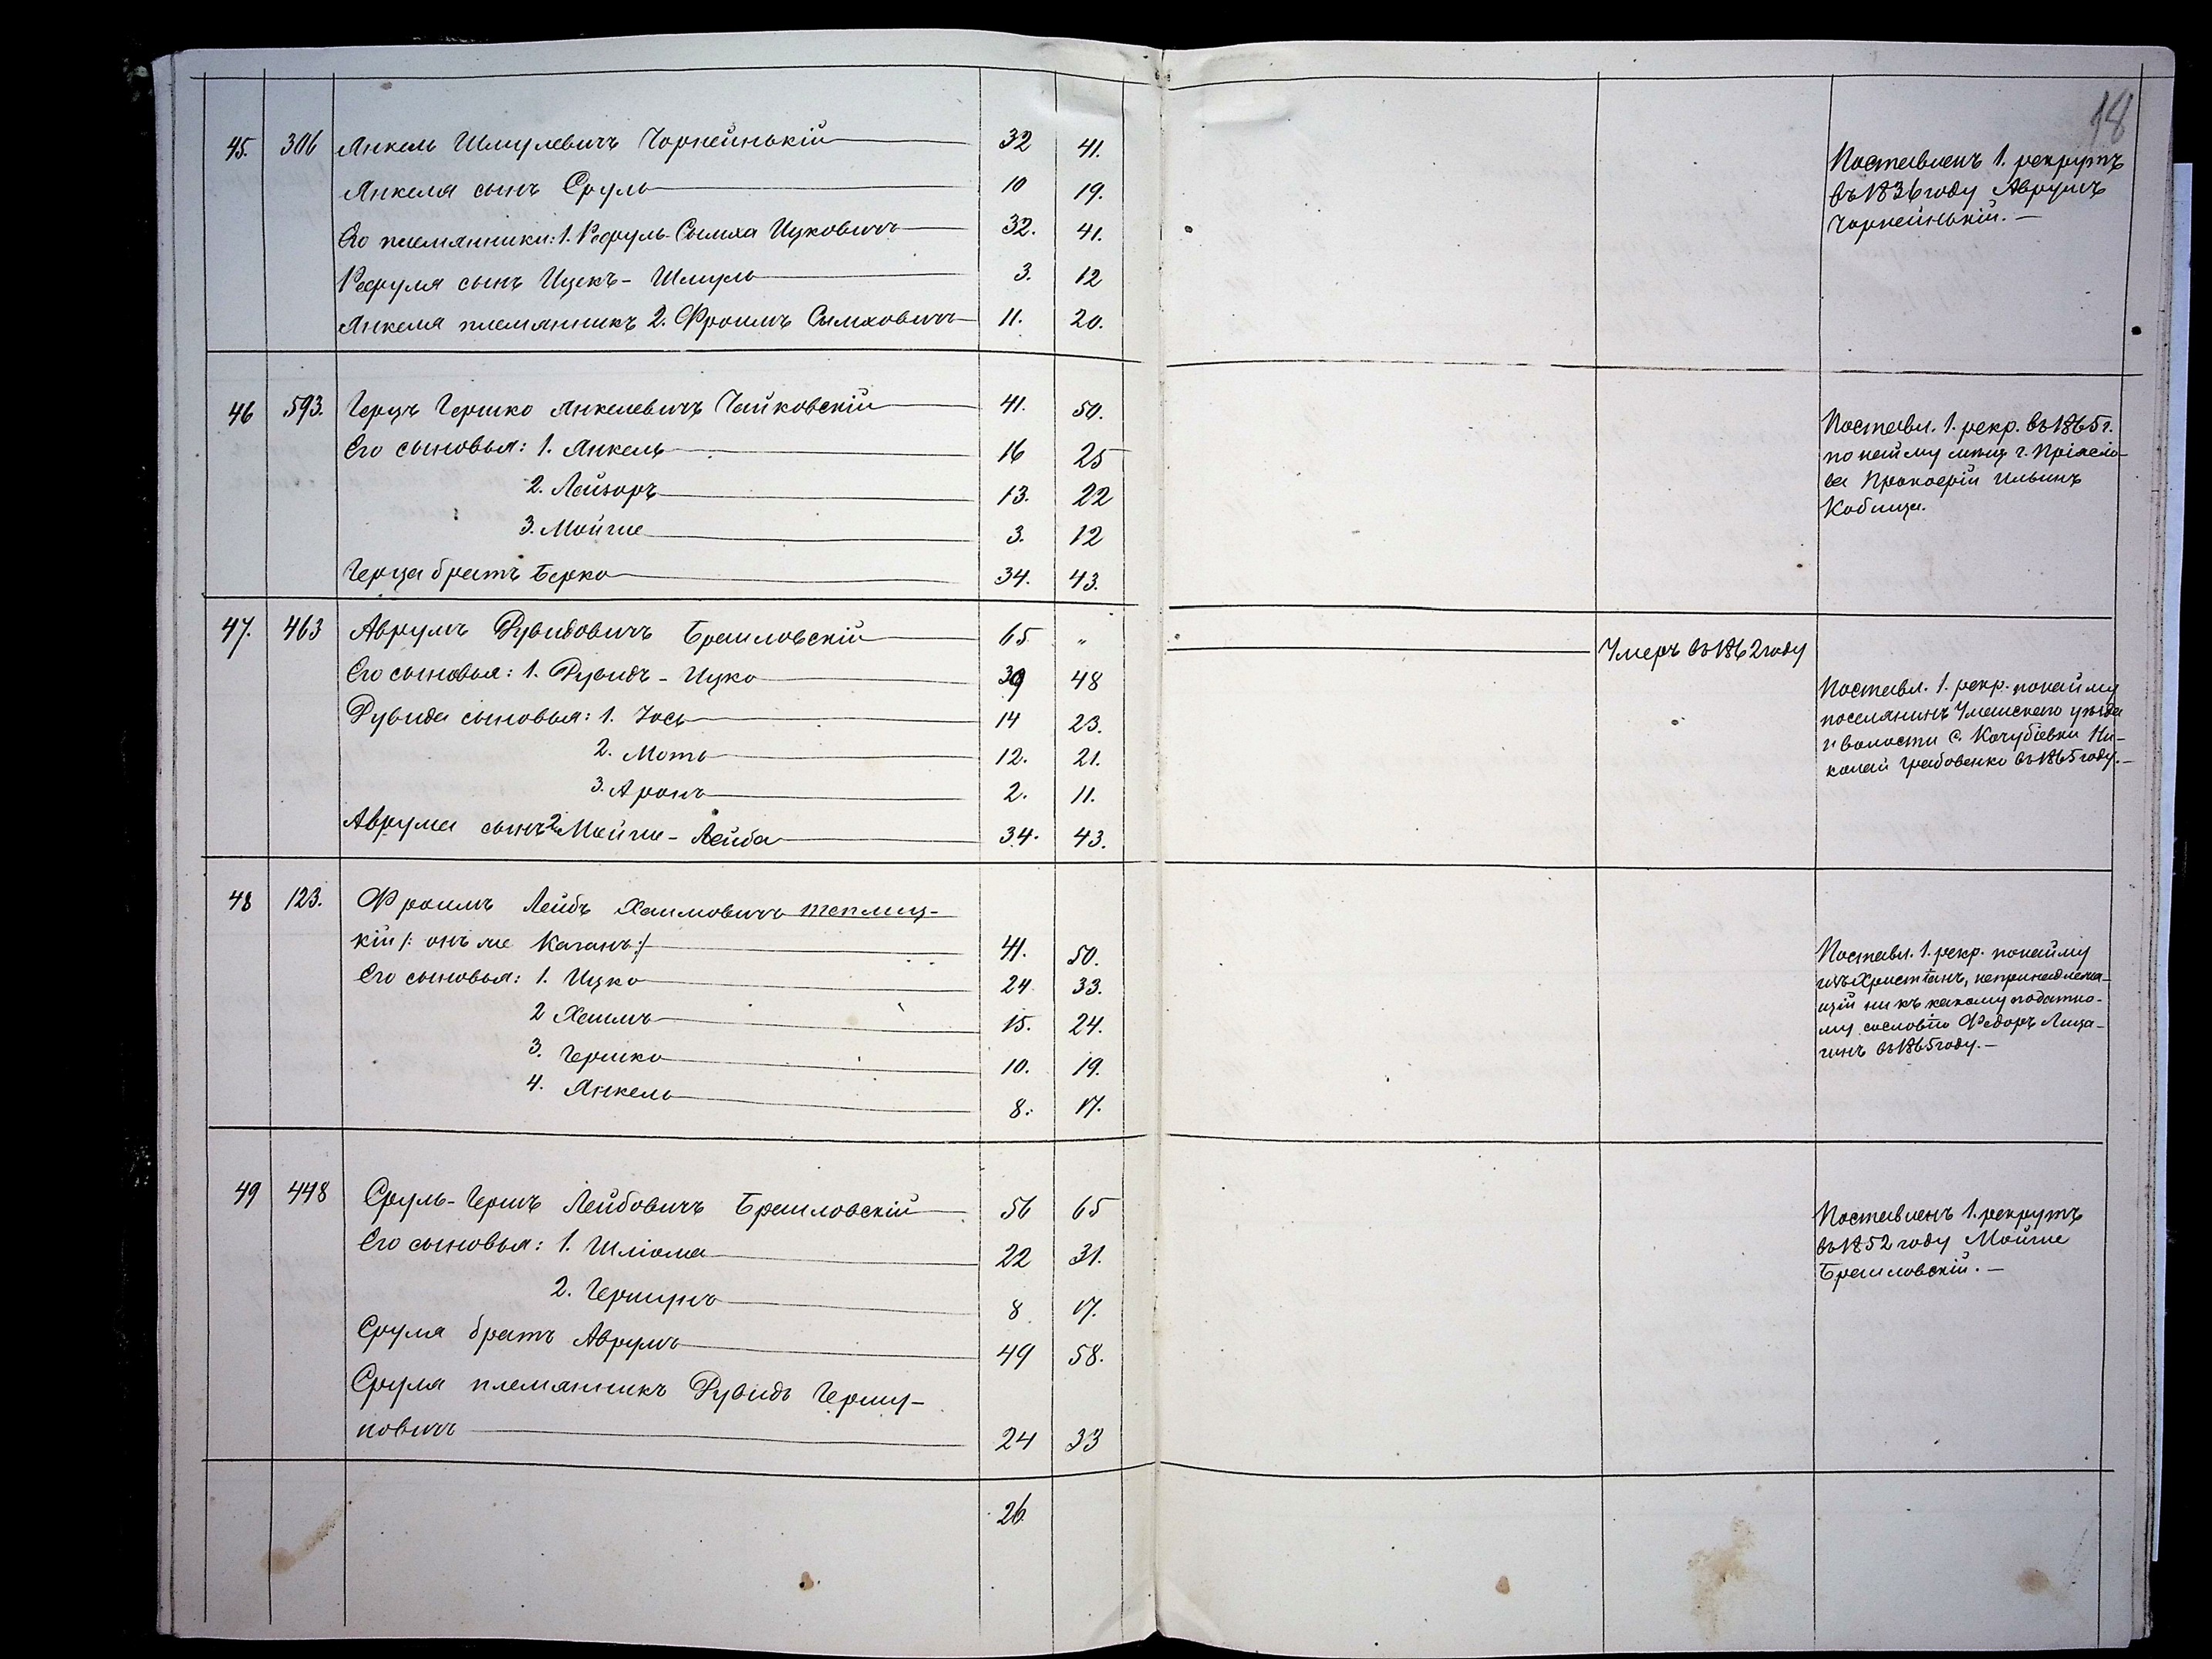 18
45. 306 Янкель Шмулевичъ Чорнейнькій 32 41.
Янкеля сынъ Сруль 10 19.
Его племянники: 1. Рефуль-Сымха Ицковичъ 32. 41.
Рефуля сынъ Ицекъ-Шмуль 3. 12
Янкеля племянникъ 2. Фроимъ Сымховичъ 11. 20.
Поставленъ 1. рекрутъ
въ 1836 году Аврумъ
Чорнейнькій.—
46 593. Герцъ Гершко Янкелевичъ Чайковскій 41. 50.
Его сыновья: 1. Янкель 16 25
2. Лейзоръ 13. 22
3. Мойше 3. 12
Герца братъ Берко 34. 43.
Поставл. 1. рекр. въ 1865 г.
по найму г.
Ильинъ
47. 463 Аврумъ Дувидовичъ Браиловскій 65 "
Умеръ въ 1862 году
Его сыновья: 1. Дувидъ-Ицко 39 48
Дувида сыновья: 1. Іось 14 23.
2. Моть 12. 21.
3. Аронъ 2. 11.
Аврума сынъ 2 Мойше-Лейба 34. 43.
Поставл. 1. рекр. по найму
поселянинъ Уманскаго уѣзда
и волости с. Кочубіевки Ни-
колай Грабовенко въ 1865 году.—
48 123. Фроимъ Лейбъ Хаимовичъ Теплиц-
кій /: онъ же Каганъ :/ 41. 50.
Его сыновья: 1. Ицко 24 33.
2 Хаимъ 15. 24.
3. Гершко 10. 19.
4. Янкель 8. 17.
Поставл. 1. рекр. по найму
изъ Христіанъ, непринадлежа-
щій ни къ какому податно-
му сословію Федоръ
въ 1865 году.—
49 448 Сруль-Гершъ Лейбовичъ Браиловскій 56 65
Его сыновья: 1. Шліома 22 31.
2. Гершунъ 8 17.
Сруля братъ Аврумъ 49 58.
Сруля племянникъ Дувидъ Гершу-
новичъ 24 33
Поставленъ 1. рекрутъ
въ 1852 году Мойше
Браиловскій.—
26.